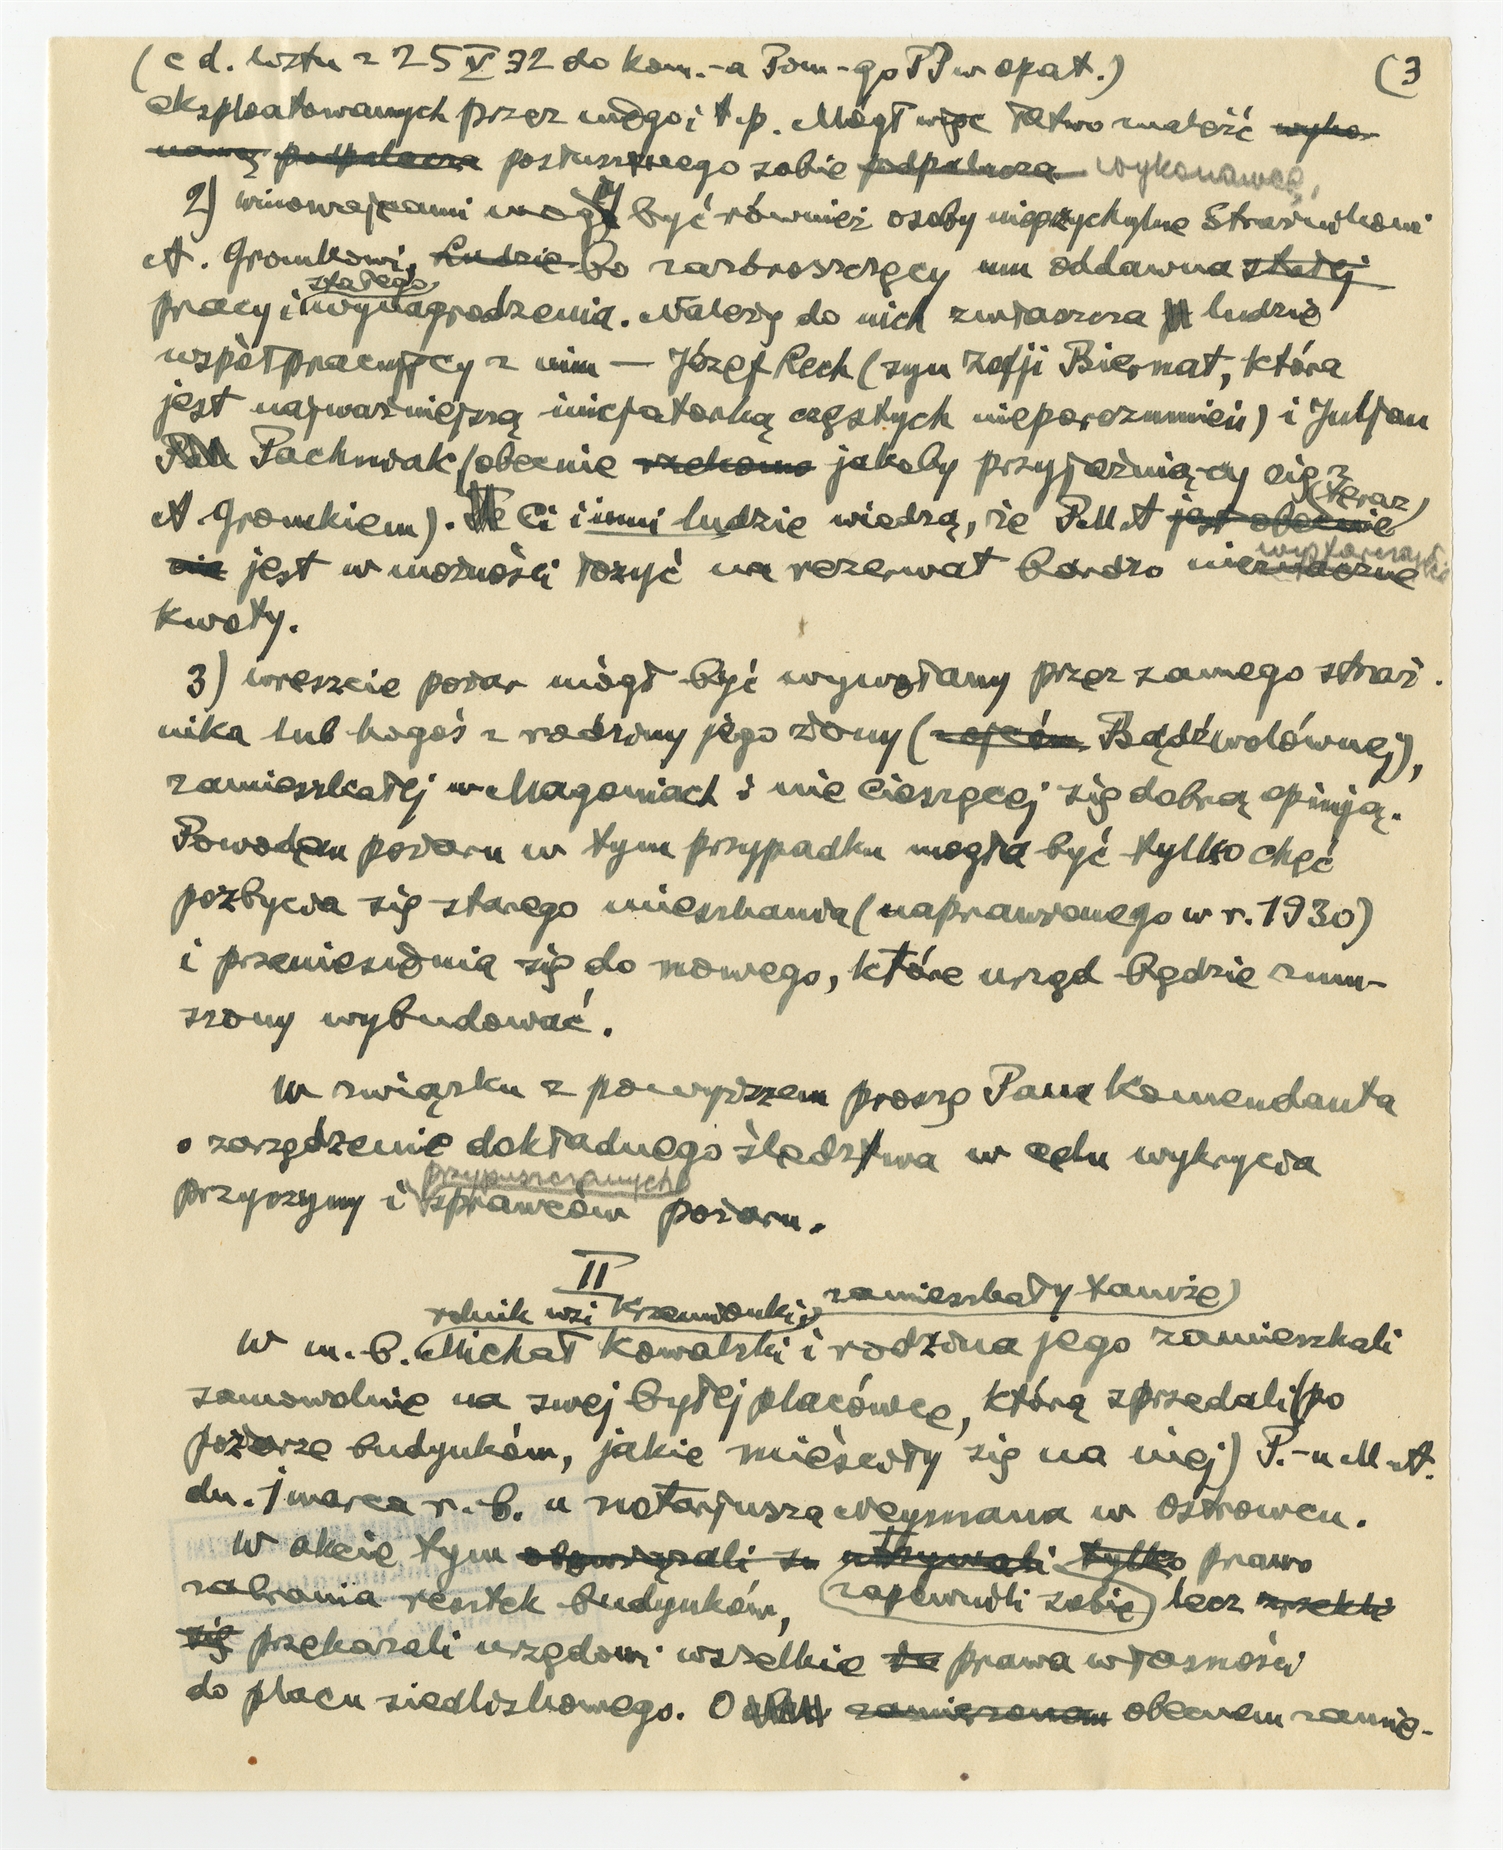 (c d. listu z 25 V 32 do kom.-a Pow-go PP w Opat.) (3
eksploatowanych przez niego i t.p. Mógł więc łatwo znaleźć wyko-
nawcę podpalacza posłusznego sobie podpalacza wykonawcę,
2) winowajcami mogły być również osoby nieprzychylne Strażnikowi
A. Gromkowi, ludzie bo zazdroszczący mu oddawna stałej
stałego
pracy i wynagrodzenia. Należą do nich zwłaszcza ludzie
współpracujący z nim — Józef Lech (syn Zofji Biernat, która
jest najważniejszą inicjatorką częstych nieporozumień) i Juljan
Pachniak (obecnie rzekomo jakoby przyjaźniący się z
A. Gromkiem). Ci i inni ludzie wiedzą, że PMA jest obecnie
teraz
nie jest w możności łożyć na rezerwat bardzo nieznaczne
wystarczające
kwoty.
3) wreszcie pożar mógł być wywołany przez samego straż-
nika lub kogoś z rodziny jego żony (z ojców Bądźwolównej),
zamieszkałej w Magoniach i nie cieszącej się dobrą opinją.
Powodem pożaru w tym przypadku mogła być tylko chęć
pozbycia się starego mieszkania (naprawionego w r. 1930)
i przeniesienia się do nowego, które urząd będzie zmu-
szony wybudować.
W związku z powyższem proszę Pana Komendanta
o zarządzenie dokładnego śledztwa w celu wykrycia
przypuszczanych
przyczyny i sprawców pożaru.
II
rolnik wsi Krzemionki, zamieszkały tamże)
W m. b. Michał Kowalski i rodzina jego zamieszkali
samowolnie na swej byłej placówce, którą sprzedali (po
pożarze budynków, jakie mieściły się na niej) P.-u M.A.
dn. 1 marca r. b. u notarjusza Neymana w Ostrowcu.
W akcie tym obowiązali się utrzymali tylko prawo
zabrania resztek budynków, zapewnili sobie lecz zrzekli
się przekazali urzędowi wszelkie prawa własności
do placu siedliskowego. O zamierzonem obecnem zamie-